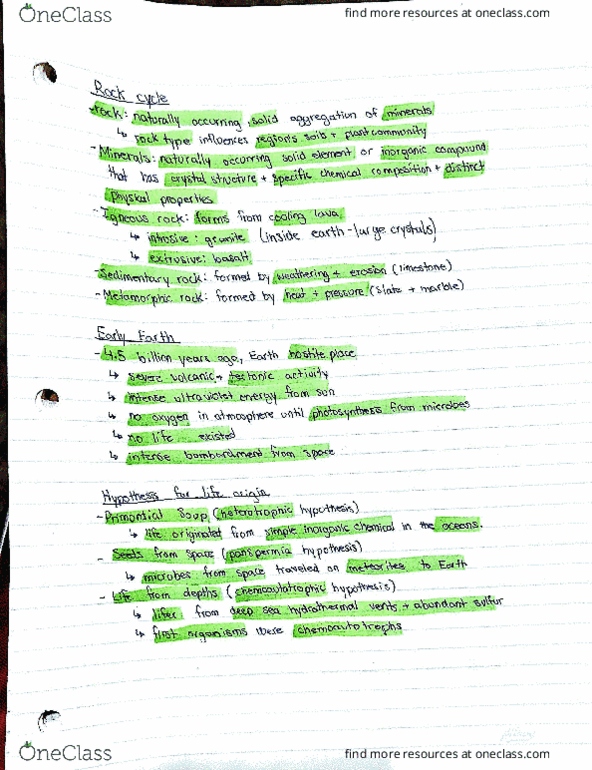 OneClass
find more resources at oneclass.com
Rock cycle
-rock: naturally occurring, solid aggregation of minerals
↳ rock type influences regions soils + plant community
- Minerals: naturally occurring solid element or inorganic compound
that has crystal structure + specific chemical composition + distinct
physical properties
- Igneous rock: forms from cooling lava.
↳ introsive: granite (inside earth - large crystals)
↳ extrusive: basalt
-Sedimentary rock: formed by weathering + erosion (limestone)
- Metamorphic rock: formed by heat + pressure (slate + marble)
Early Earth
- 4.5 billion years ago, Earth hostile place
↳ severe volcanic + tectonic activity
↳ intense ultraviolet energy from sun
↳ no oxygen in atmosphere until photosynthesis from microbes
↳ no life existed
↳ intense bombardment from space
Hypothesis for life origin
- Primordial Soup (heterotrophic hypothesis)
↳ life originated from simple inorganic chemical in the oceans.
- Seeds from space (panspermia hypothesis)
↳ microbes from space traveled on meteorites to Earth
- Life from depths (chemoautotrophic hypothesis)
↳ from deep sea hydrothermal vents + abundant sulfur
↳ first organisms were chemoautotrophs
OneClass
find more resources at oneclass.com